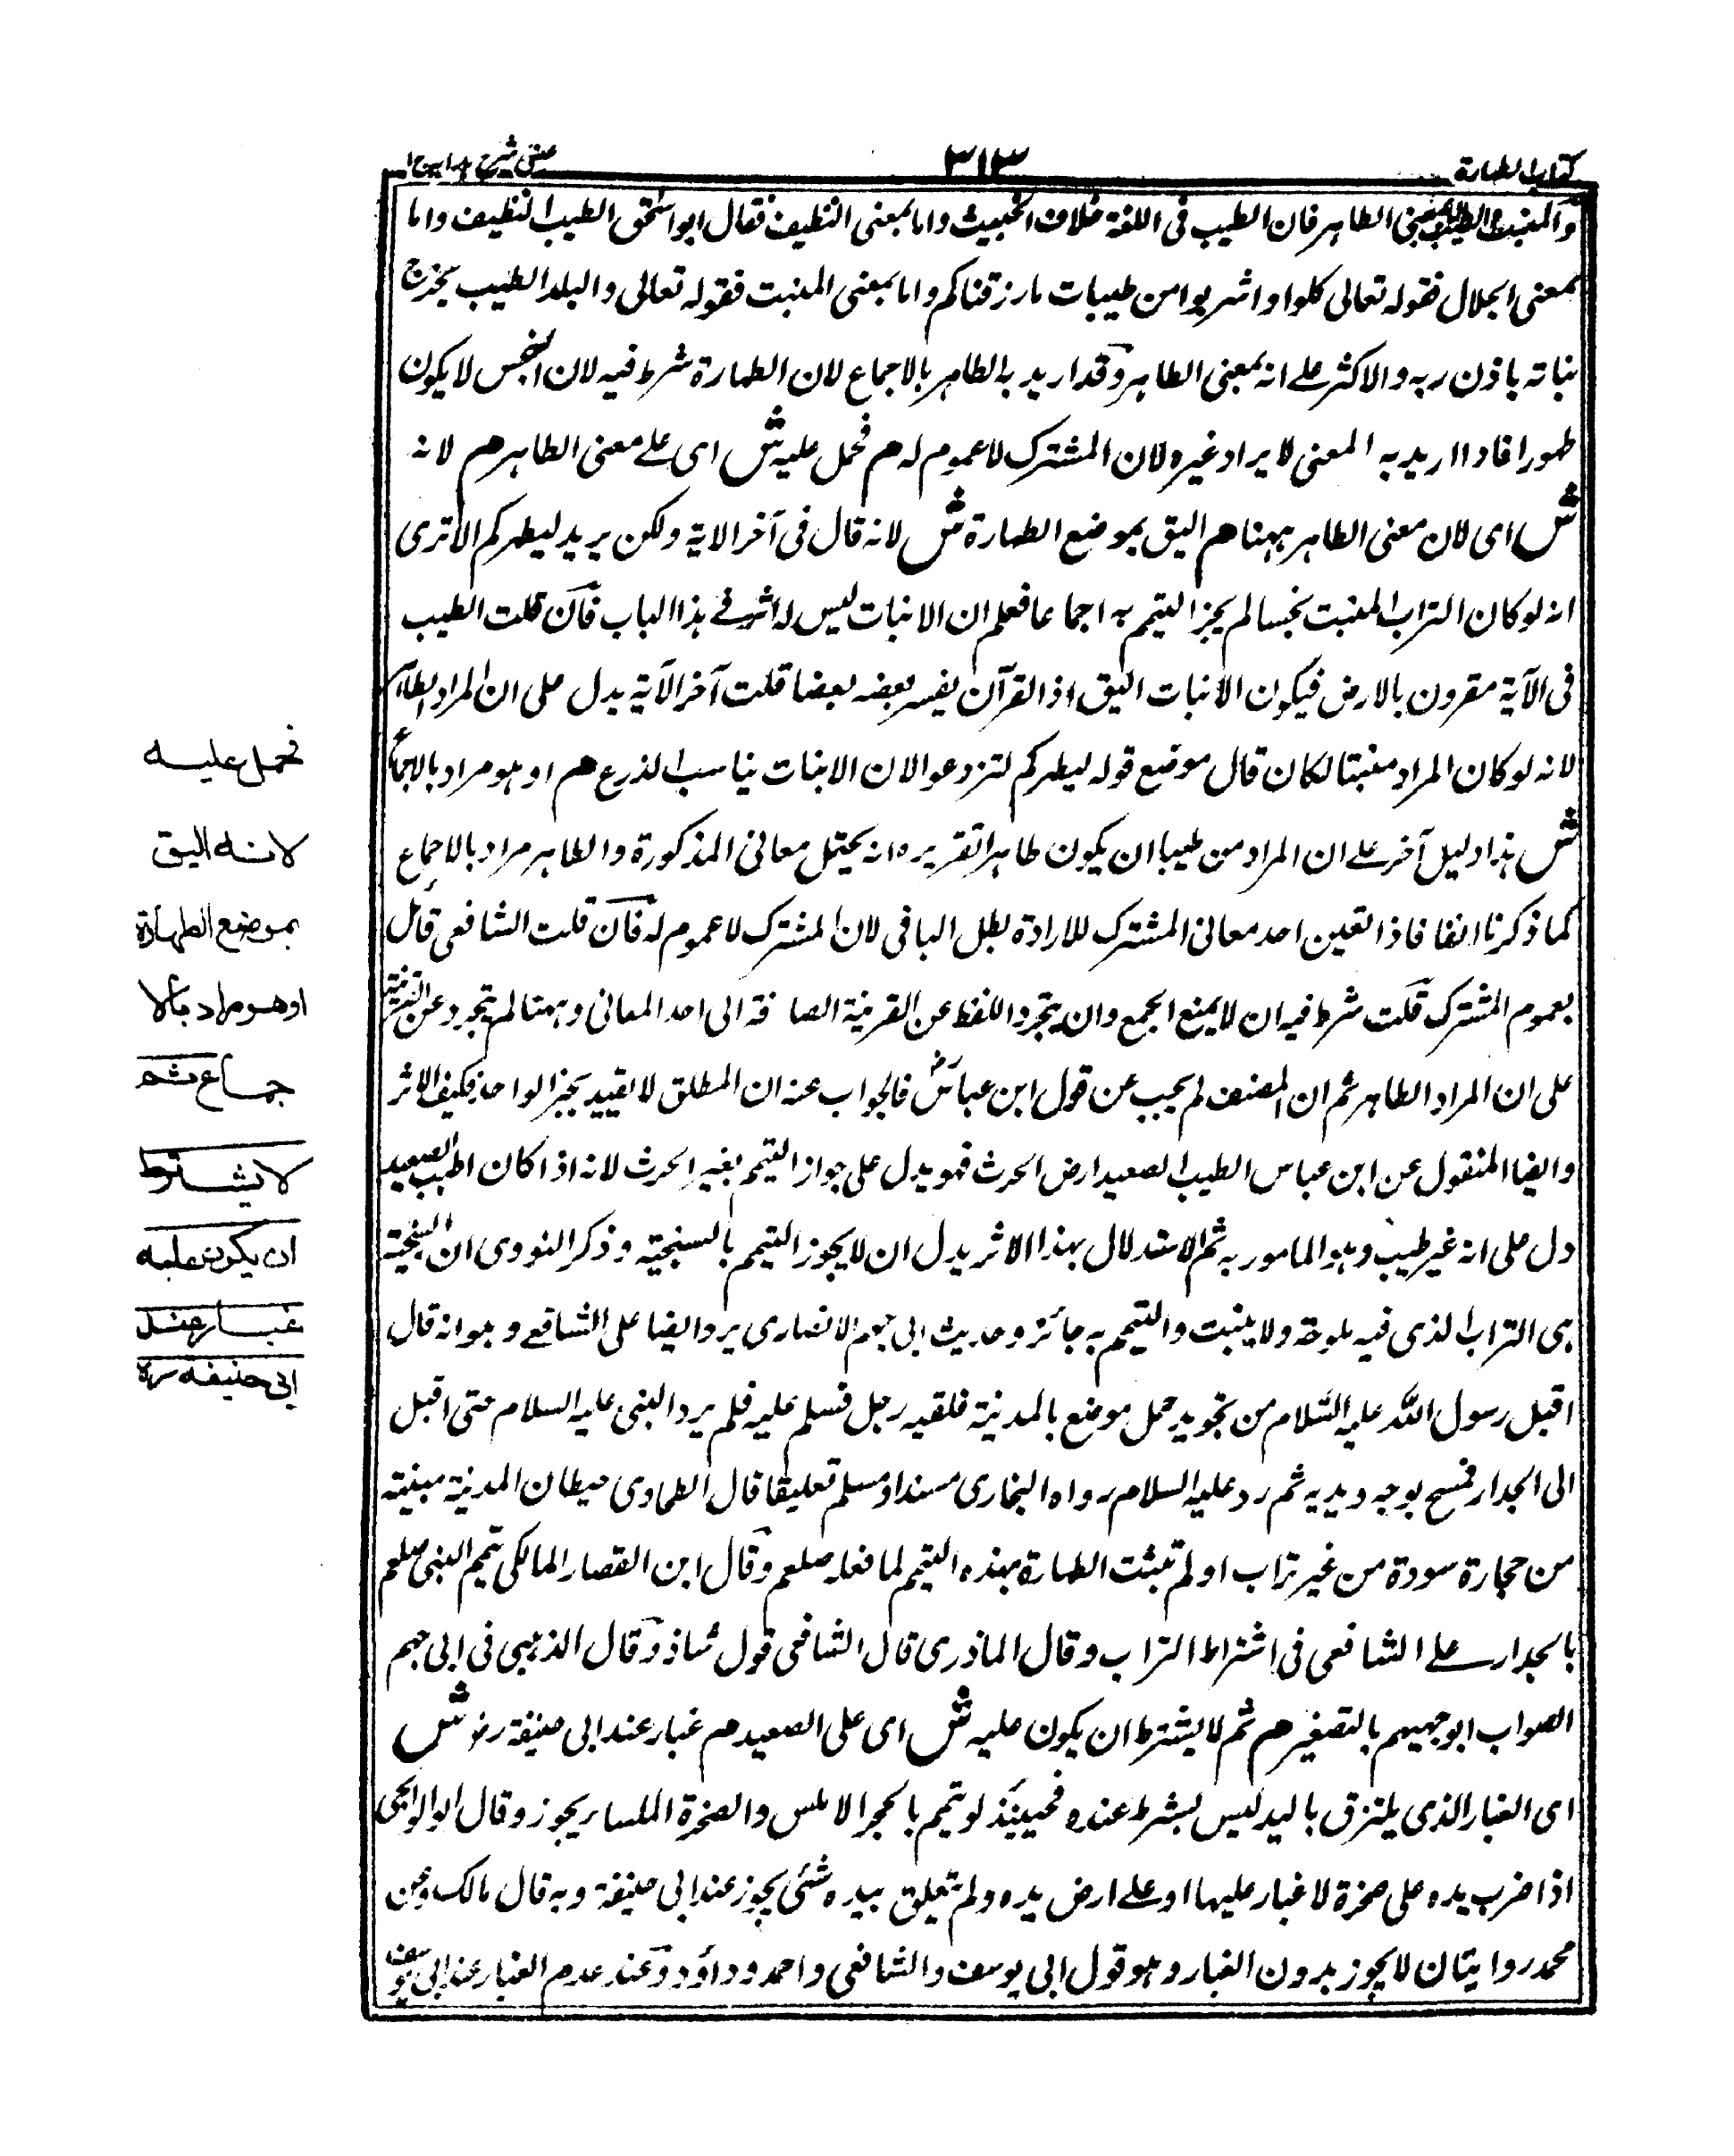 كتاب الطهارة
٣١٣
عينى شرح هدايه ج ا
والمنبت والطيب بمعنى الطاهر فان الطيب فى اللغة خلاف الخبيث واما بمعنى النظيف فقال ابو اسحٰق الطيب النظيف واما
بمعنى الحلال فقوله تعالى كلوا واشربوا من طيبات ما رزقناكم واما بمعنى المنبت فقوله تعالى والبلد الطيب يخرج
نباته باذن ربه والاكثر على انه بمعنى الطاهر وقد اريد به الطاهر بالاجماع لان الطهارة شرط فيه لان النجس لا يكون
طهورا فاذا اريد به المعنى لا يراد غيره ولان المشترك لا عموم له م فحمل عليه ش اى على معنى الطاهر م لانه
ش اى لان معنى الطاهر ههنا م اليق بموضع الطهارة ش لانه قال فى آخر الاية ولكن يريد ليطهركم الا ترى
انه لو كان التراب المنبت نجسا لم يجز التيمم به اجماعا فعلم ان الانبات ليس له اثر فى هذا الباب فان قلت الطيب
فى الآية مقرون بالارض فيكون الانبات اليق اذ القرآن يفسر بعضه بعضا قلت آخر الآية يدل على ان المراد الطاهر
لانه لو كان المراد منبتا لكان قال موضع قوله ليطهركم لتزدعوا لان الانبات يناسب الذرع م او هو مراد بالاجماع
ش هذا دليل آخر على ان المراد من طيبا ان يكون طاهرا تقريره انه يحتمل معانى المذكورة والطاهر مراد بالاجماع
كما ذكرنا انفا فاذا تعين احد معانى المشترك للارادة بطل الباقى لان المشترك لا عموم له فان قلت الشافعى قائل
بعموم المشترك قلت شرط فيه ان لا يمنع الجمع وان يتجرد اللفظ عن القرينة الصا فة الى احد المعانى وههنا لم يتجرد عن القرينة
على ان المراد الطاهر ثم ان المصنف لم يجب عن قول ابن عباس رض فالجواب عنه ان المطلق لا يقيد بخبر الواحد فكيف الاثر
وايضا المنقول عن ابن عباس الطيب الصعيد ارض الحرث فهو يدل على جواز التيمم بغير الحرث لانه اذا كان اطيب الصعيد
دل على انه غير طيب وهو المامور به ثم الاستدلال بهذا الاثر يدل ان لا يجوز التيمم بالسبخة وذكر النووى ان السبخة
هى التراب الذى فيه ملوحة ولا ينبت والتيمم به جائز وحديث ابى جهم الانصارى يرد ايضا على الشافعى وهو انه قال
اقبل رسول الله عليه السلام من نحو بير جمل موضع بالمدينة فلقيه رجل فسلم عليه فلم يرد النبى عليه السلام حتى اقبل
الى الجدار فمسح بوجهه ويديه ثم رد عليه السلام رواه البخارى مسندا ومسلم تعليقا قال الطحاوى حيطان المدينة مبنية
من حجارة سودة من غير تراب او لم تثبت الطهارة بهذه التيمم لما فعله صلعم وقال ابن القصار المالكى تيمم النبى صلعم
بالجدار على الشافعى فى اشتراط التراب وقال الماذرى قال الشافعى قول شاذ وقال الذهبى فى ابى جهم
الصواب ابو جهيم بالتصغير م ثم لا يشترط ان يكون عليه ش اى على الصعيد م غبار عند ابى حنيفة رض ش
اى الغبار الذى يلتزق باليد ليس بشرط عنده فحينئذ لو تيمم بالحجر الاملس والصخرة الملساء يجوز وقال الولوالجى
اذا ضرب يده على صخرة لا غبار عليها او على ارض يده ولم يتعلق بيده شئ يجوز عند ابى حنيفة وبه قال مالك وعن
محمد روايتان لا يجوز بدون الغبار وهو قول ابى يوسف والشافعى واحمد وداؤد وعند عدم الغبار عند ابى يوسف
فحمل عليه
لانه اليق
بموضع الطهارة
او هو مراد بالا
جماع ثم
لا يشترط
ان يكون عليه
غبار عند
ابى حنيفة رح